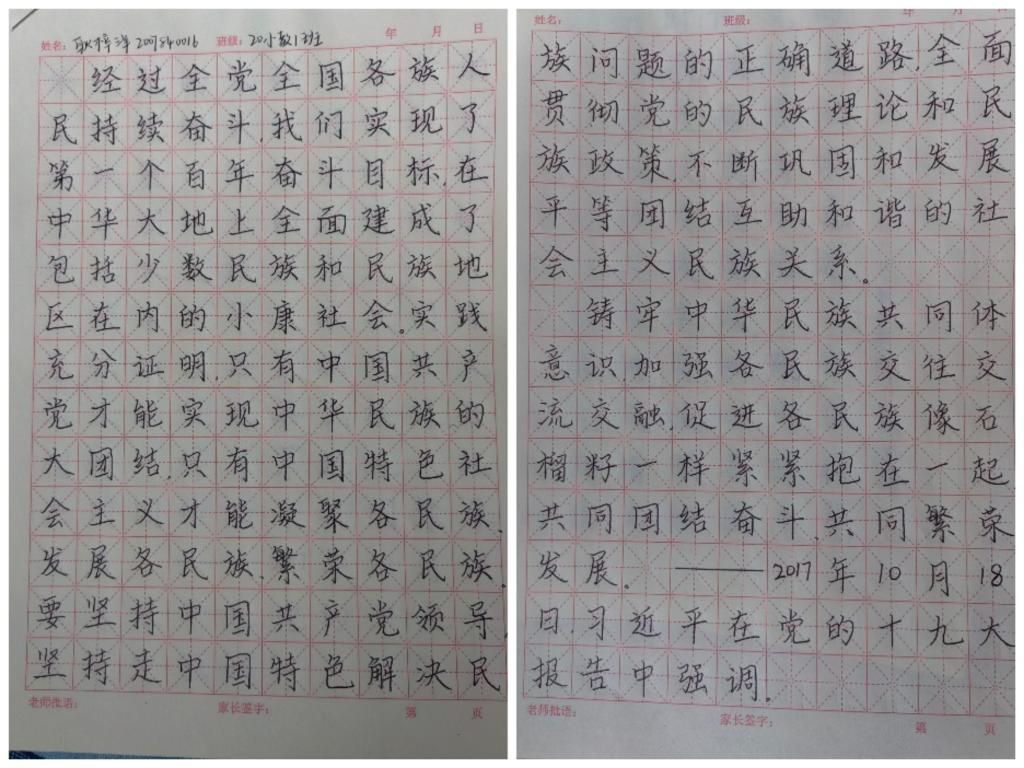 姓名： 耿梓洋 200840016 班级： 20小教1班 年 月 日
经过全党全国各族人
民持续奋斗,我们实现了
第一个百年奋斗目标,在
中华大地上全面建成了
包括少数民族和民族地
区在内的小康社会。实践
充分证明,只有中国共产
党才能实现中华民族的
大团结,只有中国特色社
会主义才能凝聚各民族、
发展各民族、繁荣各民族。
要坚持中国共产党领导,
坚持走中国特色解决民
老师批语： 家长签字： 第 页
姓名： 班级： 年 月 日
族问题的正确道路,全面
贯彻党的民族理论和民
族政策,不断巩固和发展
平等团结互助和谐的社
会主义民族关系。
铸牢中华民族共同体
意识,加强各民族交往交
流交融,促进各民族像石
榴籽一样紧紧抱在一起
共同团结奋斗、共同繁荣
发展。 ——2017年10月18
日,习近平在党的十九大
报告中强调。
老师批语： 家长签字： 第 页